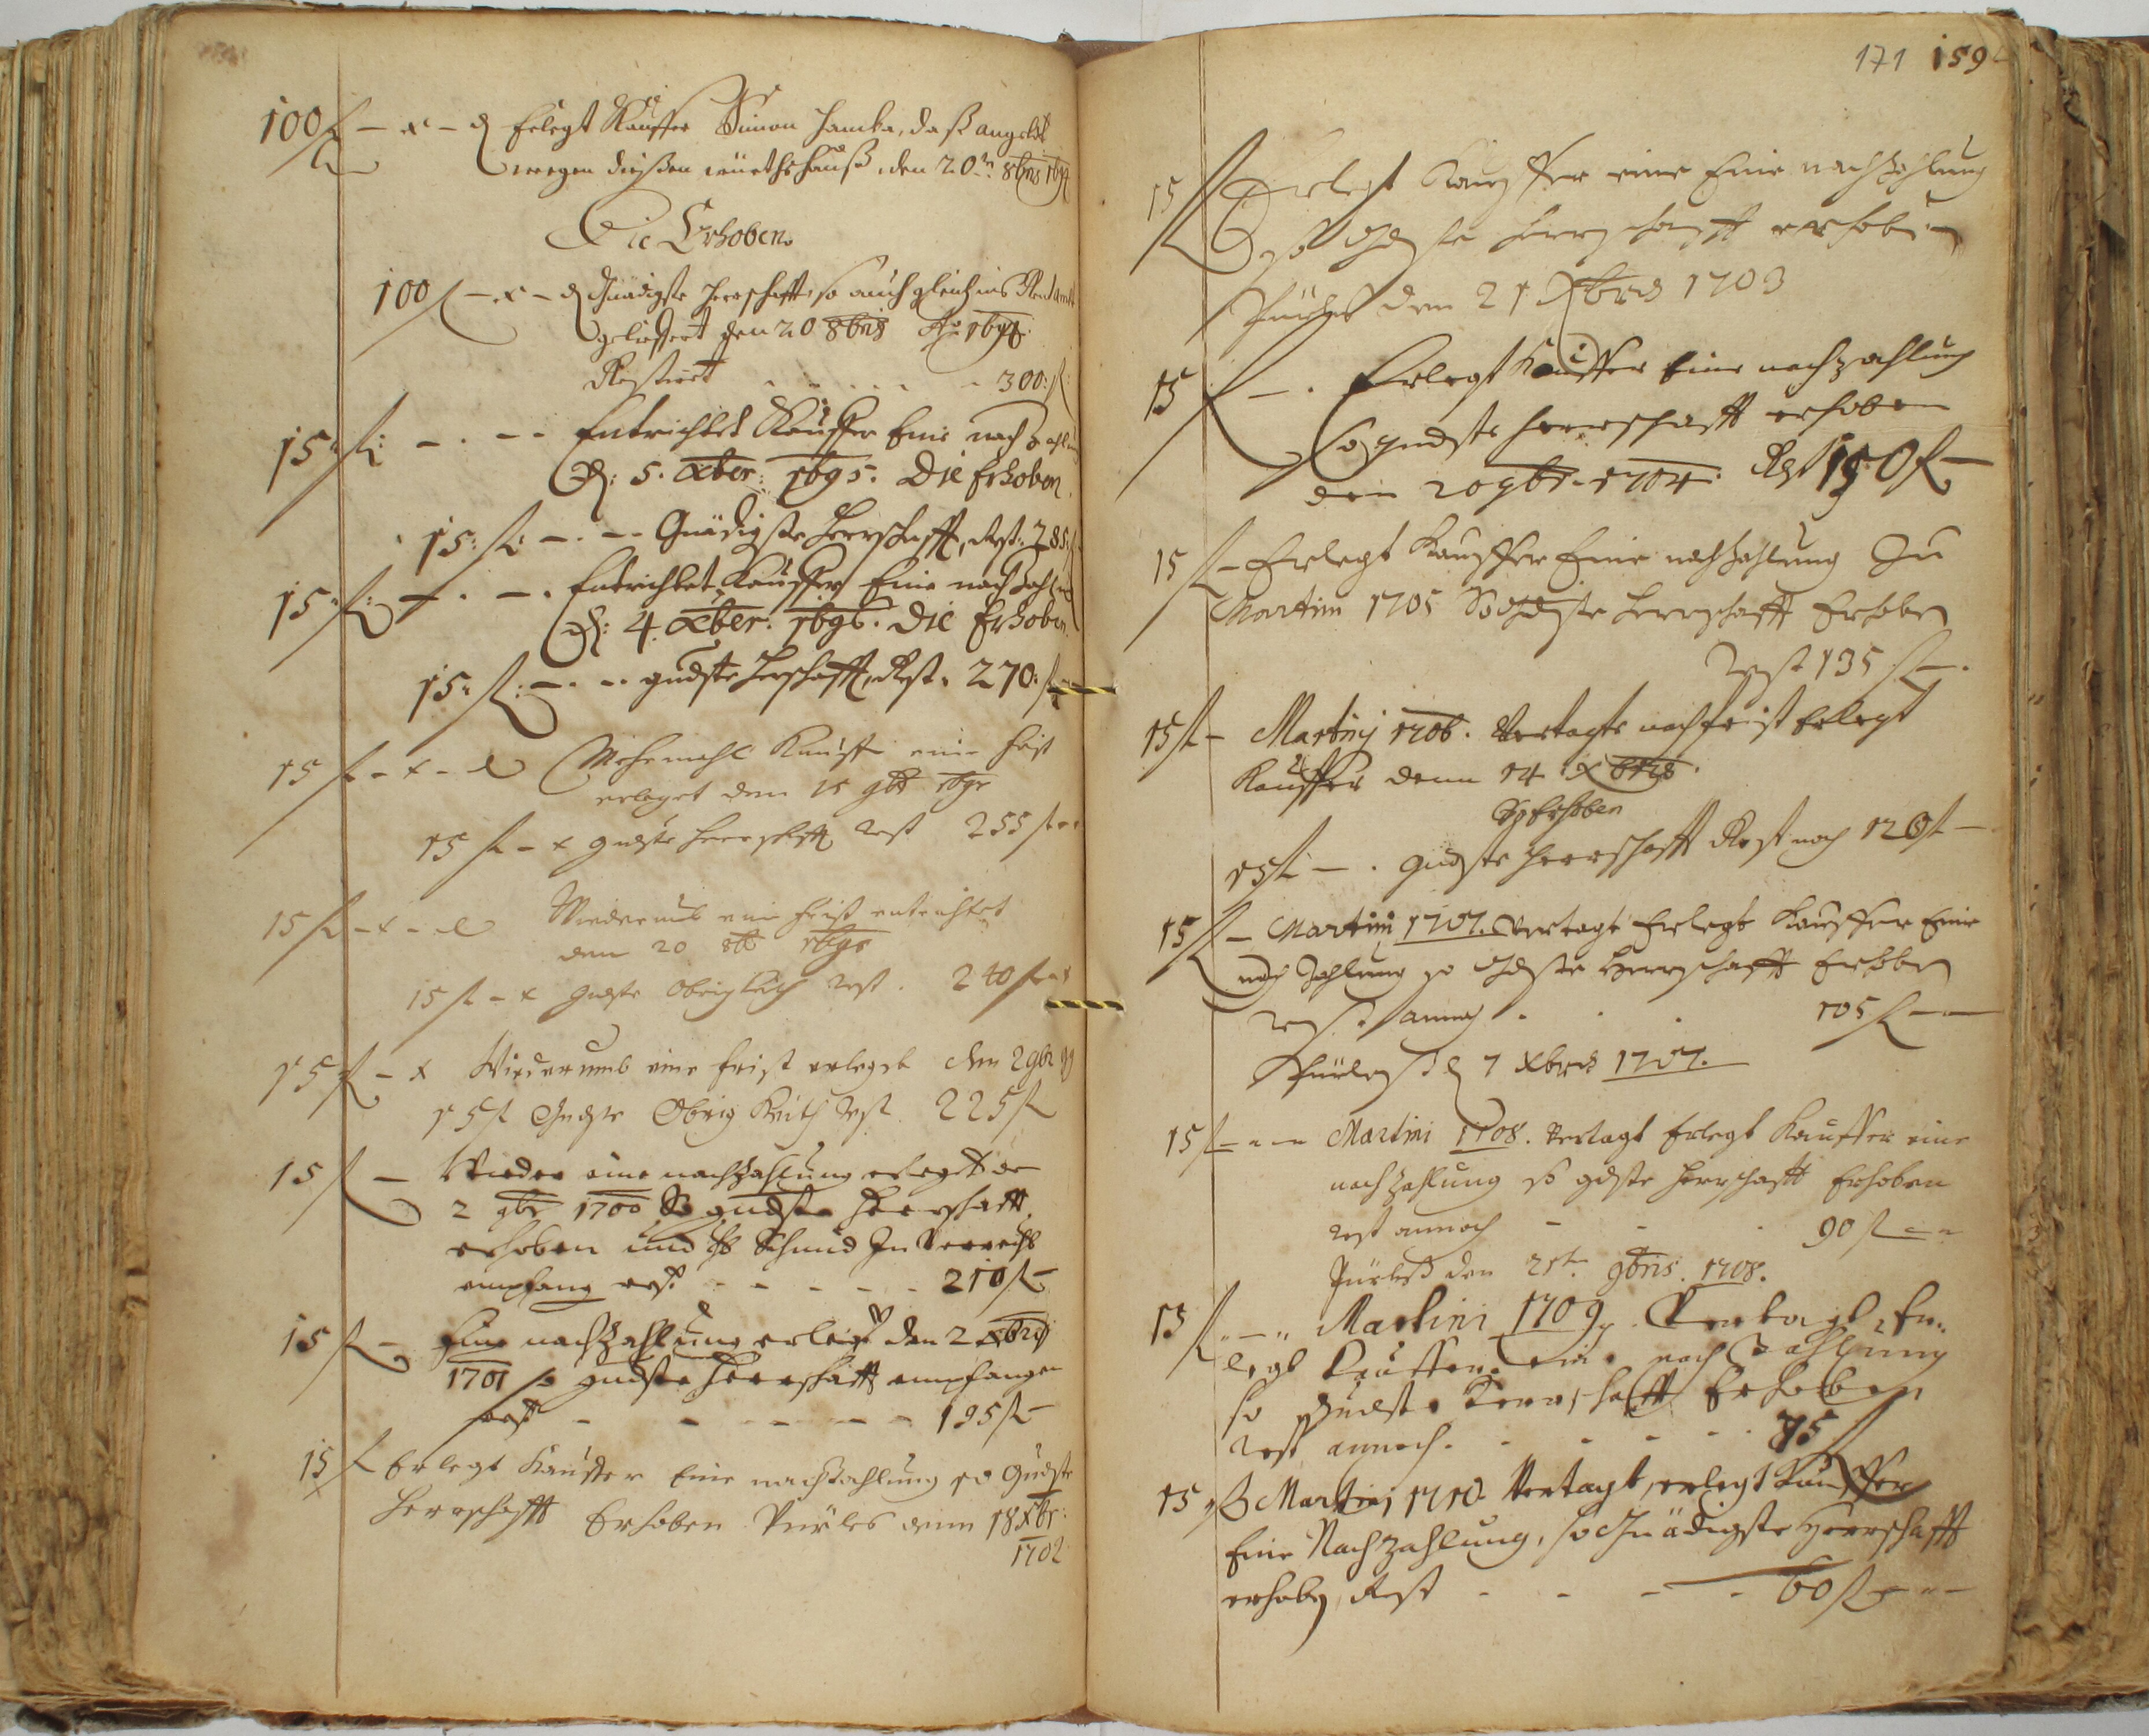 100 f – x – d Erlegt Kauffer Simon Hancka, daß angeldt
wegen dießen würthshauß, den 20ten 8bris 1694
Die Erhoben.
100 f – x – d Gnädigste Herrschafft, so auch gleich ins Rendambt
geliffert den 20 8bris Ao 1694.
Restiert . . . . . . 300: f:
15: f: – . – – Entrichtet Kauffer Eine nachzahlung
D: 5. Xber: 1695. Die Erhoben.
15: f: – . – – Gnädigste Herrschafft, Rest: 285: f
15: f: – . – . Entrichtet Kauffer Eine nachzahlung
D: 4. Xber. 1696. Die Erhoben.
15: f: – . – . gndste Herschafft, Rest: 270: f
15 f – x – d Mehrmahl Kauffer eine frist
erleget den 15 9br
15 f – x gndste Herrschafft rest 255 f
15 f – x – d Wiederumb eine frist entrichtet
den 20
15 f – x gndste Obrigkeith rest . 240 f
15 f – x Wiederumb eine frist erlegt den 2 9br 99
15 f Gndste Obrigkeith rest. 225 f
15 f – Wieder eine nachzahlung erlegt den
2 9br 1700 So gndste Herrschafft
erhoben und Schmid In Verrechn
empfang rest . – – – – 210 f –
15 f – Eine nachzahlung erlegt den 2 Xbris
1701 so gndste Herrschafft empfangen
rest – – – – – – 195 f –
15 f Erlegt Kauffer Eine nachzahlung so Gndste
Herrschafft Erhoben Pürles denn 18 Xbr:
1702
171 159
15 f Erlegt Kauffer eine Eine nachzahlung
so Gdste Herrschafft erhoben
Pürles den 21 Xbris 1703
15 f – . Erlegt Kauffer Eine nachzahlung
So gndste Herrschafft erhoben
den 20 9br. 1704. Rest 150 f –
15 f – Erlegt Kauffer Eine nachzahlung Zu
Martini 1705 So Gdste Herrschafft Erhoben
rest 135 f – .
15 f – Martiny 1706. Vertagte nachfrist Erlegt
Kauffer denn 14 Xbris.
So Erhoben
15 f – . gndste Herrschafft Rest noch 120 f –
15 f – Martini 1707. Vertagt Erlegt Kauffer Eine
nachzahlung so Gdste Herrschafft Erhoben
rest annoch . . . 105 f – –
Pürles d 7 Xbris 1707.
15 f – – – Martini 1708. Vertagt Erlegt Kauffer eine
nachzahlung so gdste Herrschafft Erhoben
rest annoch – – . 90 f – –
Pürles den 21te 9bris. 1708.
15 f „ – „ Martini 1709. Vertagt, Er-
legt Kauffer eine nachzahlung
so Gndste Herrschafft Erheben
rest annoch. . . . . 75 f
15 f Martini 1710. Vertagt, erlegt Kauffer
Eine Nachzahlung, so Gnädigste Herrschafft
erhoben, Rest – – – . 60 f – – –